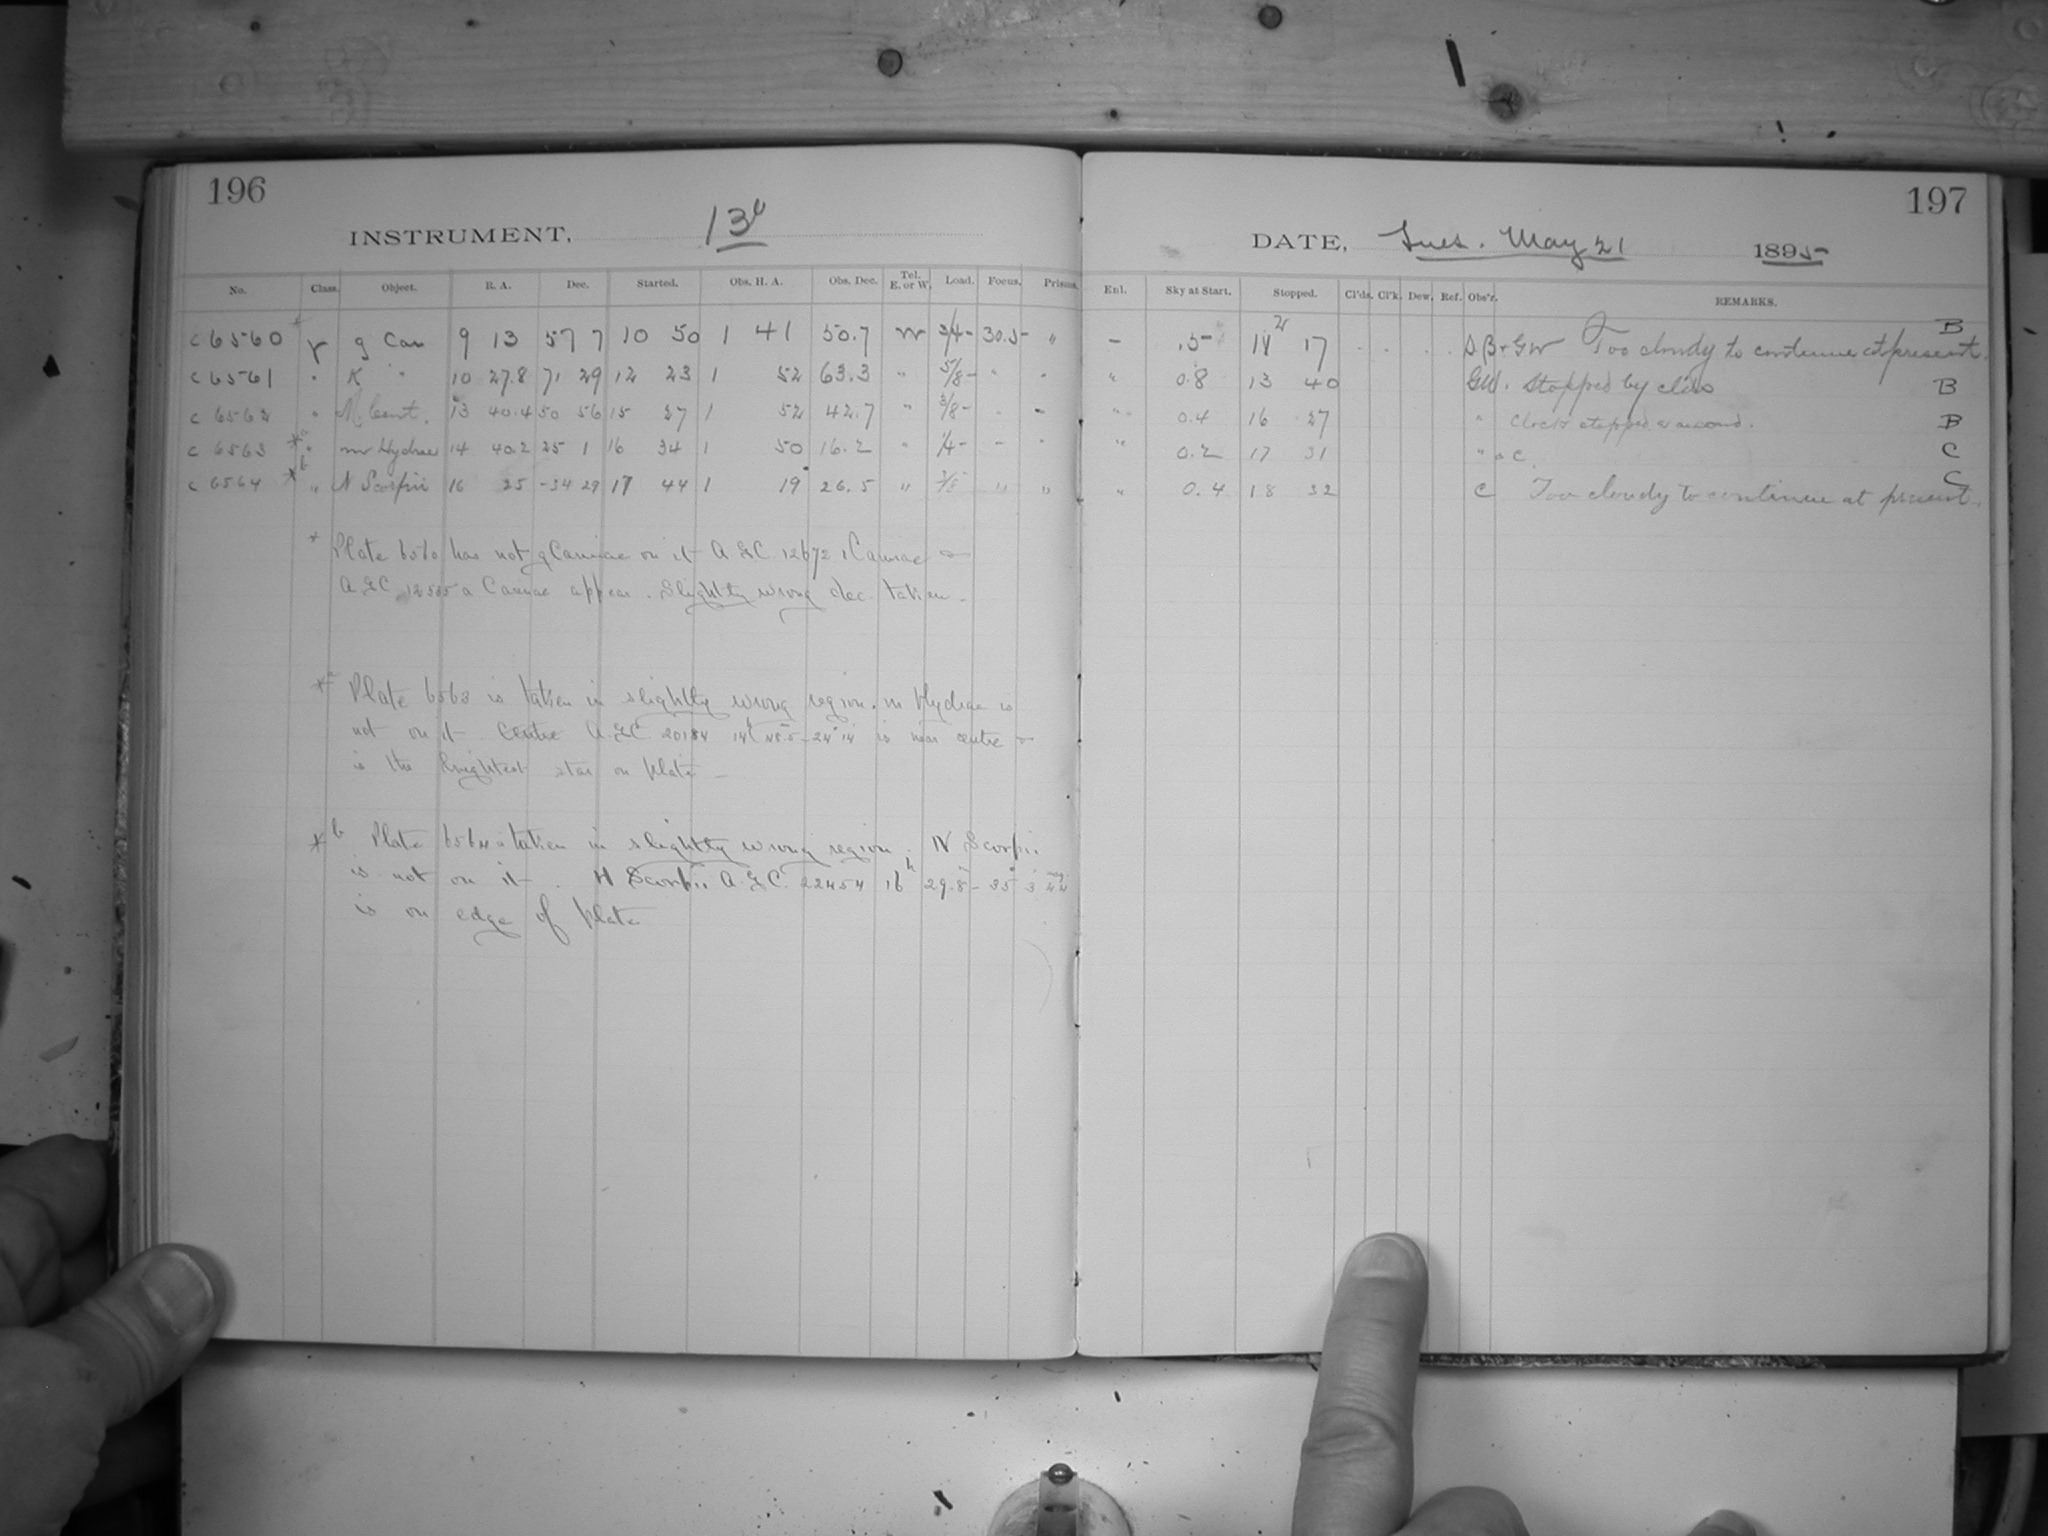 196
INSTRUMENT, 13"
No. Class. Object. R. A. Dec. Started. Obs. H. A. Obs. Dec. Tel. E. or W. Load. Focus. Prisms.
c 6560 * r g Car 9 13 57 7 10 50 1 41 50.7 W 3/4 - 30.5 - "
c 6561 " K " 10 27.8 71 29 12 23 1 52 63.3 " 5/8 - " "
c 6562 " M. Cent. 13 40.4 50 56 15 27 1 52 42.7 " 3/8 - " "
c 6563 *a " m Hydrae 14 40.2 25 1 16 34 1 50 16.2 " 1/4 - - "
c 6564 *b " N Scorpii 16 25 -34 29 17 44 1 19 26.5 " " "
* Plate 6560 has not g Carinae on it A.G.C. 12672 i Carinae &
A.G.C. 12585 a Carinae appear. Slightly wrong dec. taken.
*a Plate 6563 is taken in slightly wrong region. m Hydrae is
not on it Centre A.G.C. 20184 14h 48.5 - 24° 14 is near centre &
is the brightest star on plate -
*b Plate 6564 taken in slightly wrong region. N Scorpii
is not on it. H Scorpii A.G.C. 22454 16h 29.8 - 35° 3'
is on edge of plate
197
DATE, Tues. May 21 1895
Enl. Sky at Start. Stopped. Cl'ds. Cl'k. Dew. Ref. Obs'r. REMARKS.
- .5 - 17 SB + GW Too cloudy to continue at present. B
" 0.8 13 40 GW. Stopped by clds B
" 0.4 16 27 " Clock stopped a second. B
" 0.2 17 31 " & C. C
" 0.4 18 32 C Too cloudy to continue at present. C